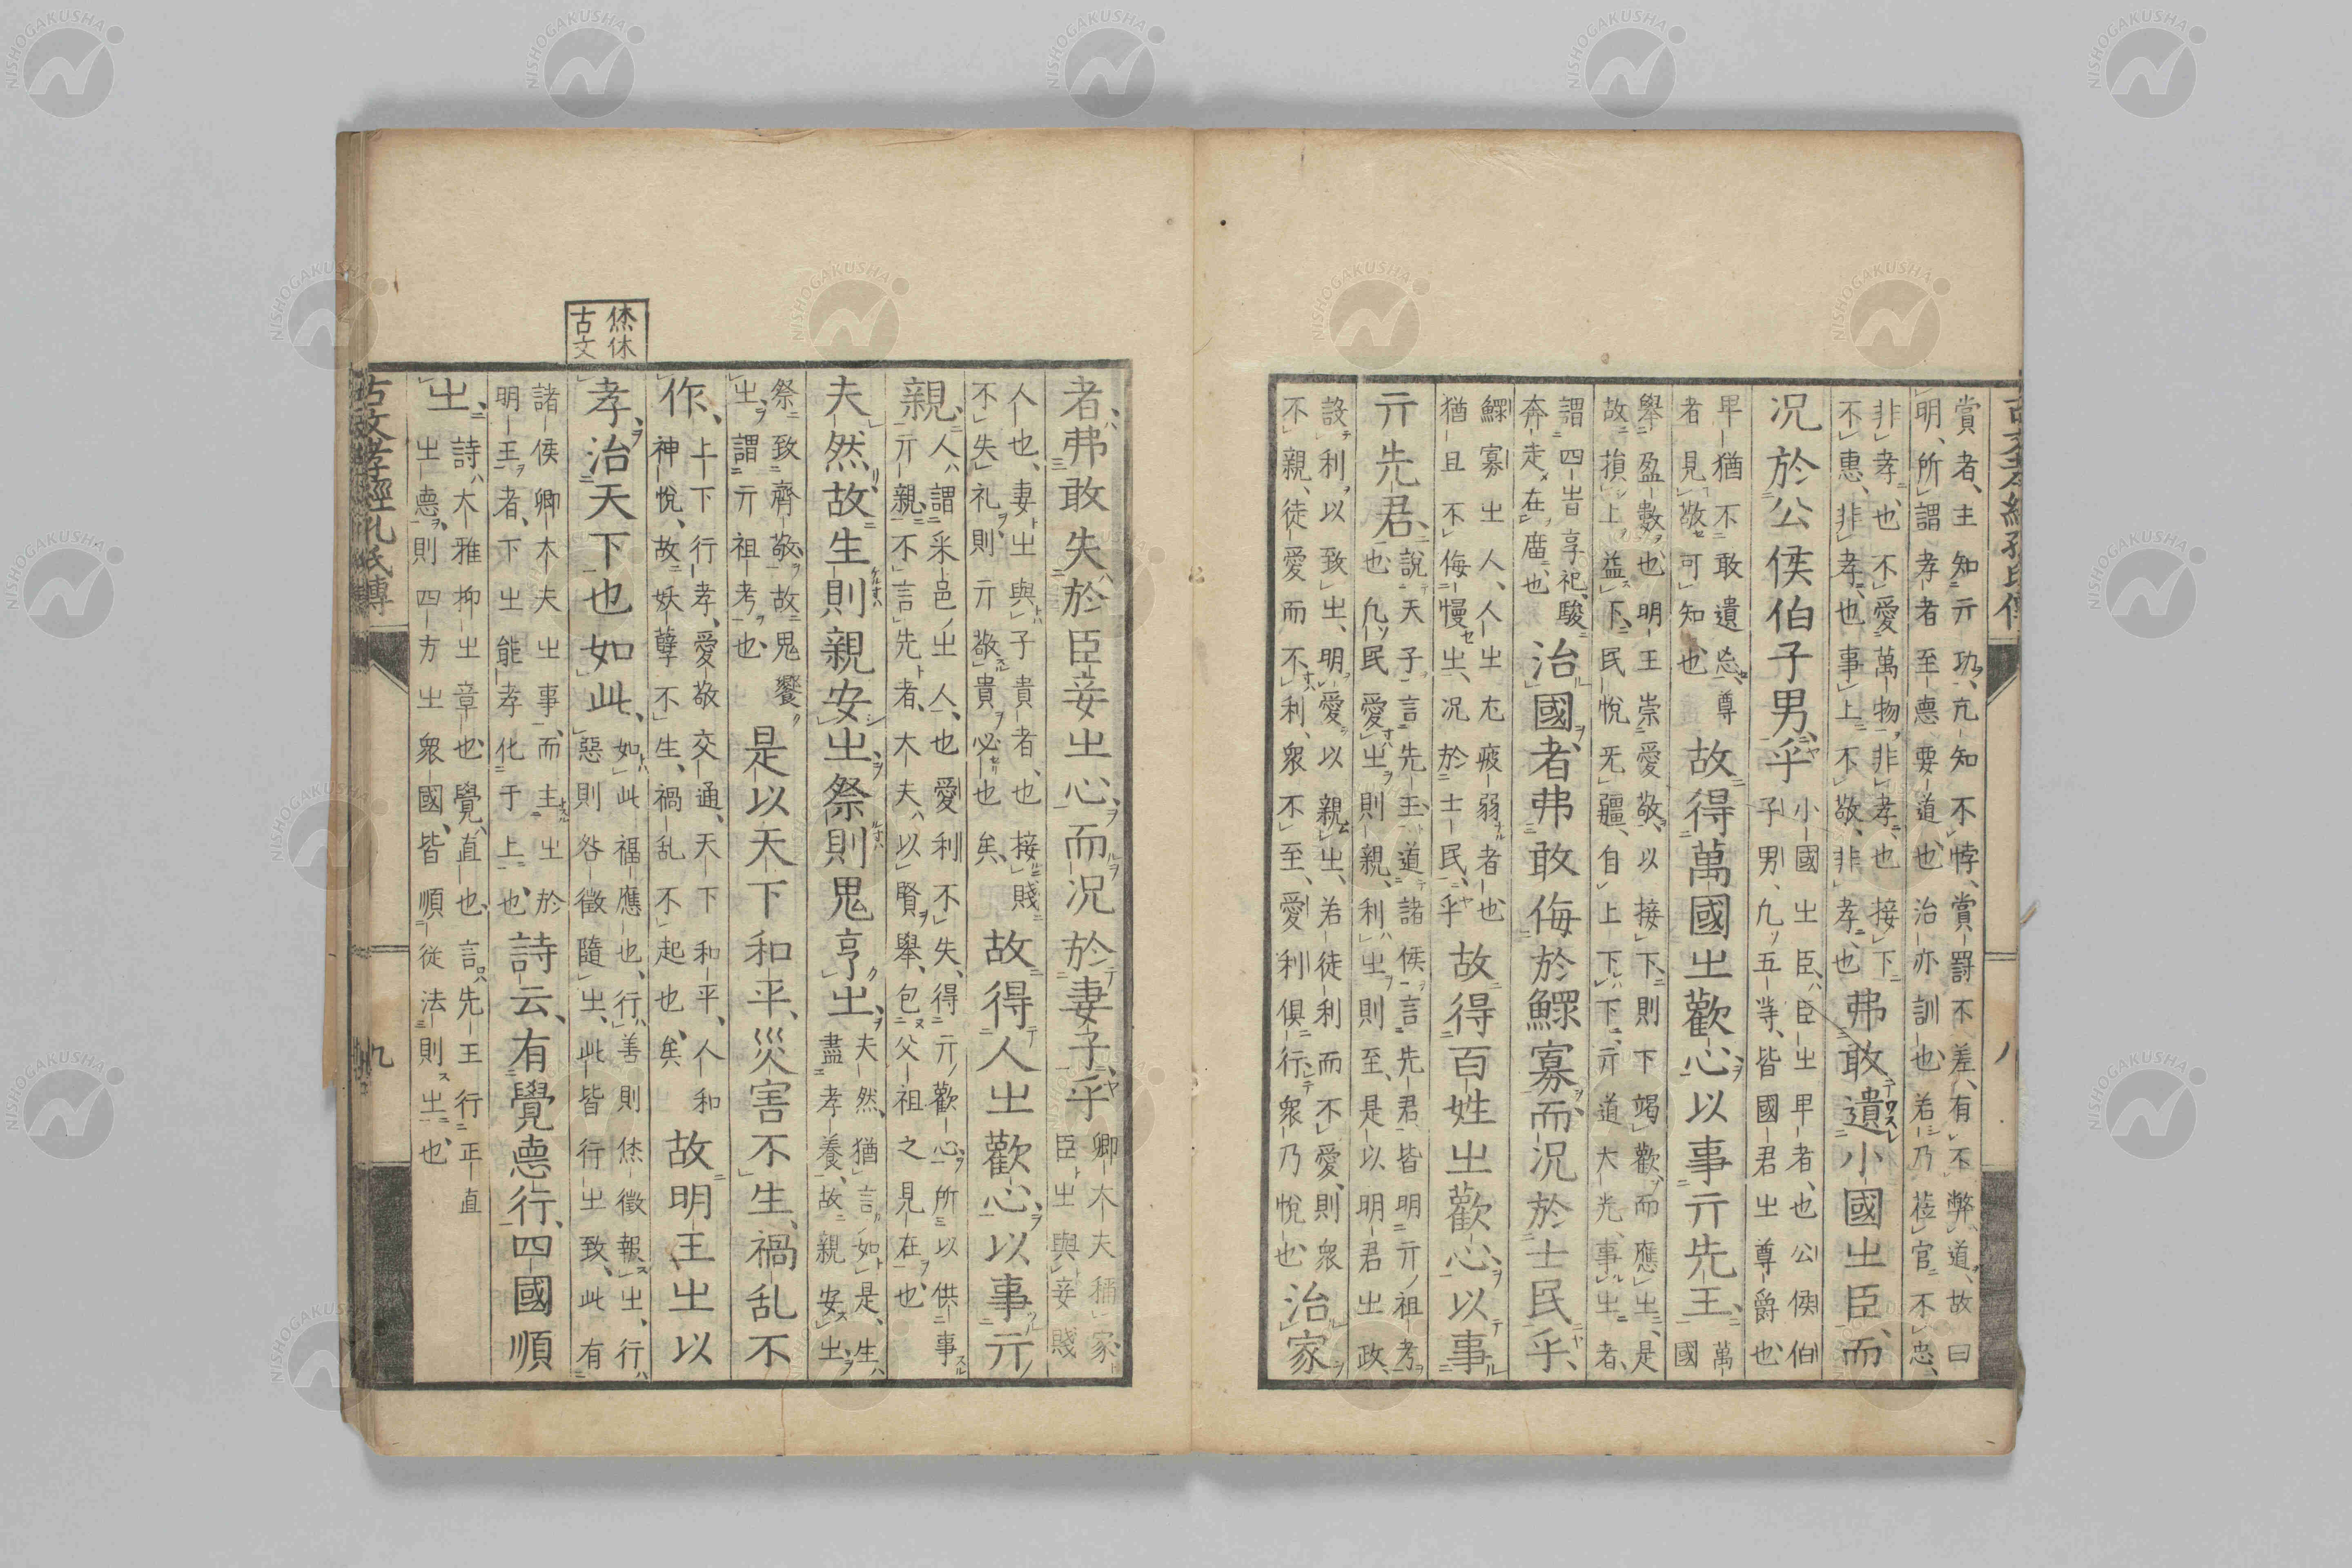 古文孝經孔氏傳
八
賞者、主知亓功、亢知不悖、賞罰不差、有不弊道、故曰
明、所謂孝者至悳要道也、治亦訓也、若乃莅官不忠、
非孝也、不愛萬物、非孝也、接下
不惠、非孝也、事上不敬、非孝也
弗敢遺小國㞢臣、而
况於公侯伯子男乎
小國㞢臣、臣㞢卑者、也公侯伯
子男、凡五等、皆國君㞢尊爵也、
卑猶不敢遺忘、尊
者見敬可知也
故得萬國㞢歡心以事亓先王、
萬
國
舉盈數也、明王崇愛敬、以接下、則下竭歡、而應㞢、是
故損上益下、民悅无疆、自上下下、亓道大光、事㞢者、
謂四旹享祀、駿
奔走在庿也
治國者弗敢侮於鰥寡、而况於士民乎、
鰥寡㞢人、人㞢尫疲弱者也
猶且不侮慢㞢、况於士民乎
故得百姓㞢歡心、以事
亓先君、
說天子言先王、道諸侯言先君、皆明亓祖考
也、凡民愛㞢則親、利㞢則至、是以明君㞢政、
設利以致㞢、明愛以親㞢、若徒利而不愛、則衆
不親、徒愛而不利、衆不至、愛利俱行、衆乃悅也、
治家
者、弗敢失於臣妾㞢心、而况於妻子、乎
卿大夫稱家、
臣㞢與妾賤
人也、妻㞢與子貴者、也接賤
不失礼、則亓敬貴必也矣、
故得人㞢歡心、以事亓
親、
人謂采邑㞢人、也愛利不失、得亓歡心、所以供事
亓親、不言先者、大夫、以賢舉、包父祖之見在也、
夫然、故生則親安㞢、祭則鬼亨㞢、
夫然、猶言如是、生
盡孝養、故親安㞢、
祭致齊敬、故鬼饗
㞢、謂亓祖考也、
是以天下和平、災害不生、禍乱不
作、
上下行孝、愛敬交通、天下和平、人和
神悅、故妖孽不生、禍乱不起也、矣
故明王㞢以
孝、治天下也如此、
如此福應也、行善則休徵報㞢、行
惡則咎徵隨㞢、此皆行㞢致、此有
諸侯卿大夫㞢事、而主㞢於
明王者、下㞢能孝化于上也、
詩云、有覺悳行、四國順
㞢、
詩大雅抑㞢章也、覺直也、言先王行正直
㞢悳、則四方㞢衆國、皆順從法則㞢也
烋休
古文
古文孝經孔氏傳
九